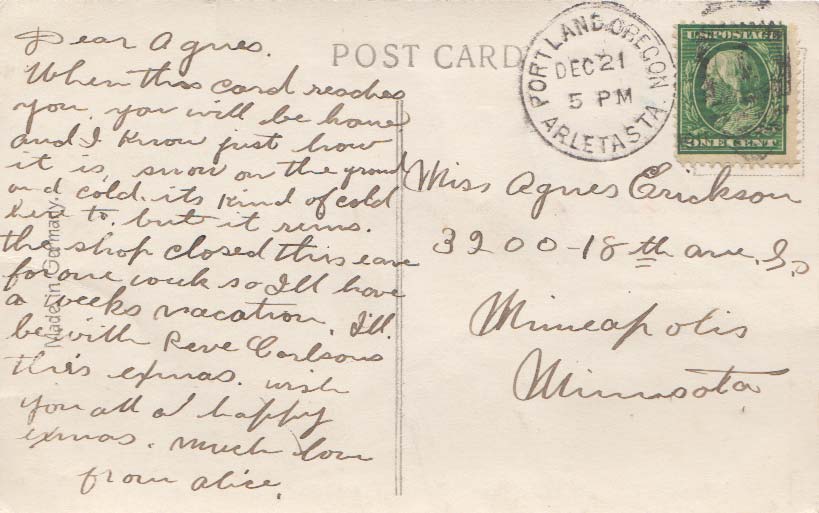 Dear Agnes.
When this card reaches
you, you will be home
and I know just how
it is, snow on the ground
and cold. its kind of cold
here to. but it rains.
the shop closed this eave
for one week so I'll have
a weeks vacation. I'll
be with Reve Carlsons
this exmas. wish
you all a happy
exmas. much love
from Alice.
POST CARD
Made in Germany.
PORTLAND, OREGON
DEC 21
5 PM
ARLETA STA.
U.S. POSTAGE
ONE CENT
Miss Agnes Erickson
3200-18th ave. So
Minneapolis
Minnesota